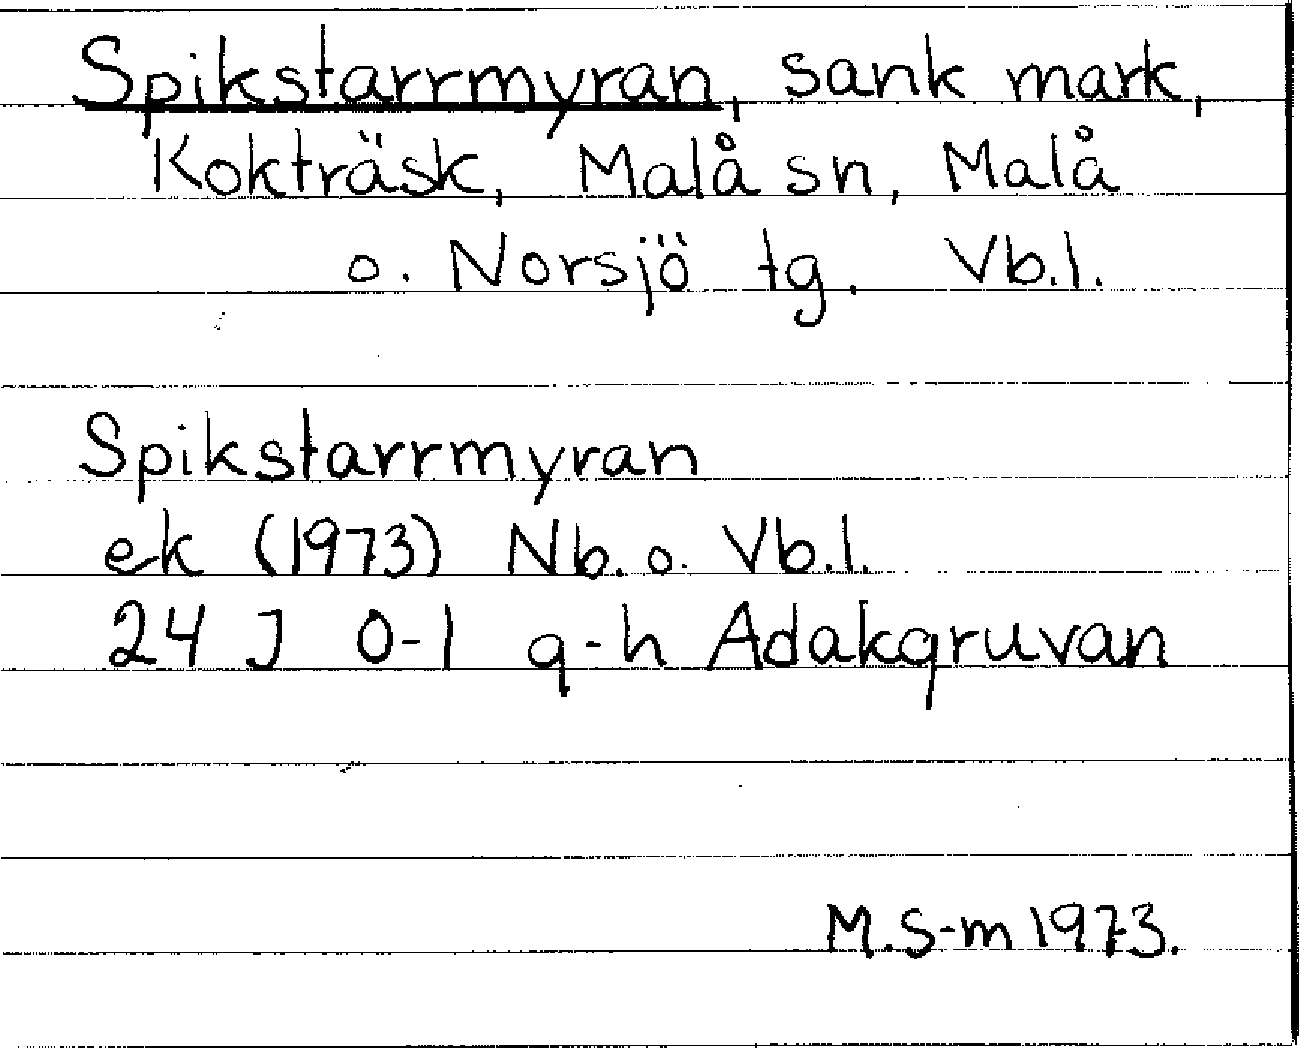 Spikstarrmyran, sank mark,
Kokträsk, Malå sn, Malå
o. Norsjö tg. Vb.l.
Spikstarrmyran
ek (1973) Nb. o. Vb.l.
24 J 0-1 g-h Adakgruvan
M.S-m 1973.